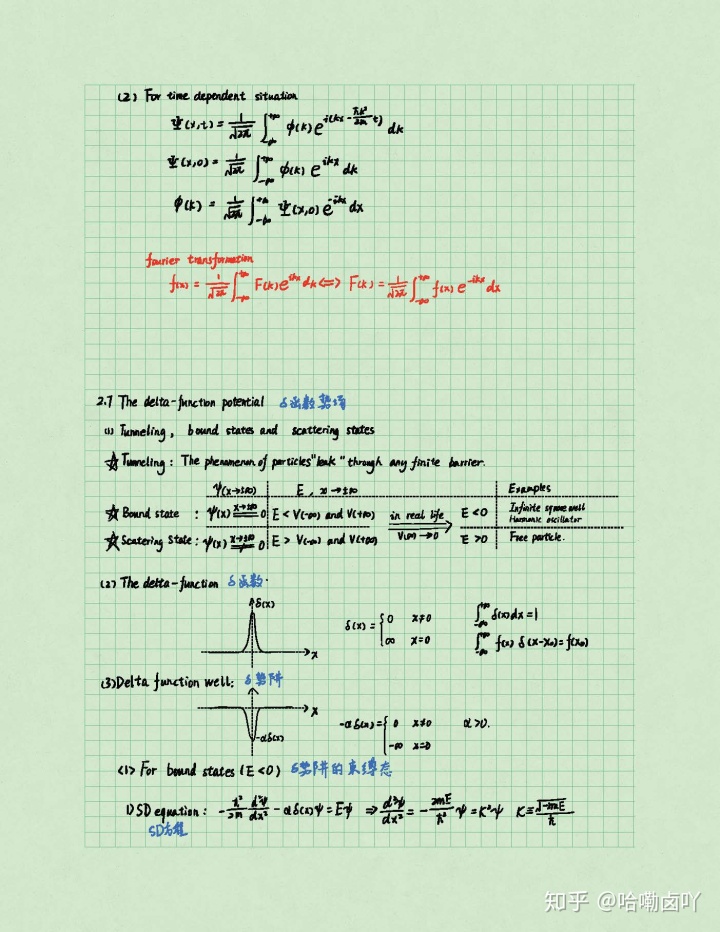 (2) For time dependent situation
Ψ(x,t) = 1/√2π ∫_{-∞}^{+∞} φ(k) e^{i(kx - ħk²/2m t)} dk
Ψ(x,0) = 1/√2π ∫_{-∞}^{+∞} φ(k) e^{ikx} dk
φ(k) = 1/√2π ∫_{-∞}^{+∞} Ψ(x,0) e^{-ikx} dx
fourier transformation
f(x) = 1/√2π ∫_{-∞}^{+∞} F(k) e^{ikx} dk ⟺ F(k) = 1/√2π ∫_{-∞}^{+∞} f(x) e^{-ikx} dx
2.7 The delta-function potential δ函数势场
(1) Tunneling, bound states and scattering states
☆ Tunneling: The phenomenon of particles "leak" through any finite barrier.
ψ(x→±∞) E, x→±∞ Examples
☆ Bound state : ψ(x) x→±∞ = 0 E < V(-∞) and V(+∞) in real life V(∞)→0 E<0 Infinite square well Harmonic oscillator
☆ Scatering state: ψ(x) x→±∞ ≠ 0 E > V(-∞) and V(+∞) E>0 Free particle.
(2) The delta-function δ函数.
δ(x) x δ(x) = { 0 x≠0 ∫_{-∞}^{+∞} δ(x)dx = 1
∞ x=0 ∫_{-∞}^{+∞} f(x) δ(x-x₀) = f(x₀)
(3) Delta function well: δ势阱
x -αδ(x) -αδ(x) = { 0 x≠0 α>0.
-∞ x=0
<1> For bound states (E<0) δ势阱的束缚态
1) SD equation: -ħ²/2m d²ψ/dx² - αδ(x)ψ = Eψ ⇒ d²ψ/dx² = -2mE/ħ² ψ = K²ψ K ≡ √-2mE/ħ
SD方程
知乎 @哈嘞卤吖